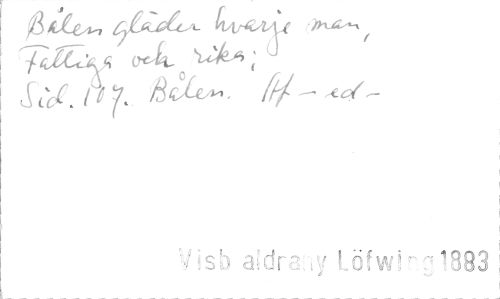 Bålen gläder hvarje man,
Fattiga och rika;
Sid. 107. Bålen. Af – ed –
Visb aldrany Löfwing 1883